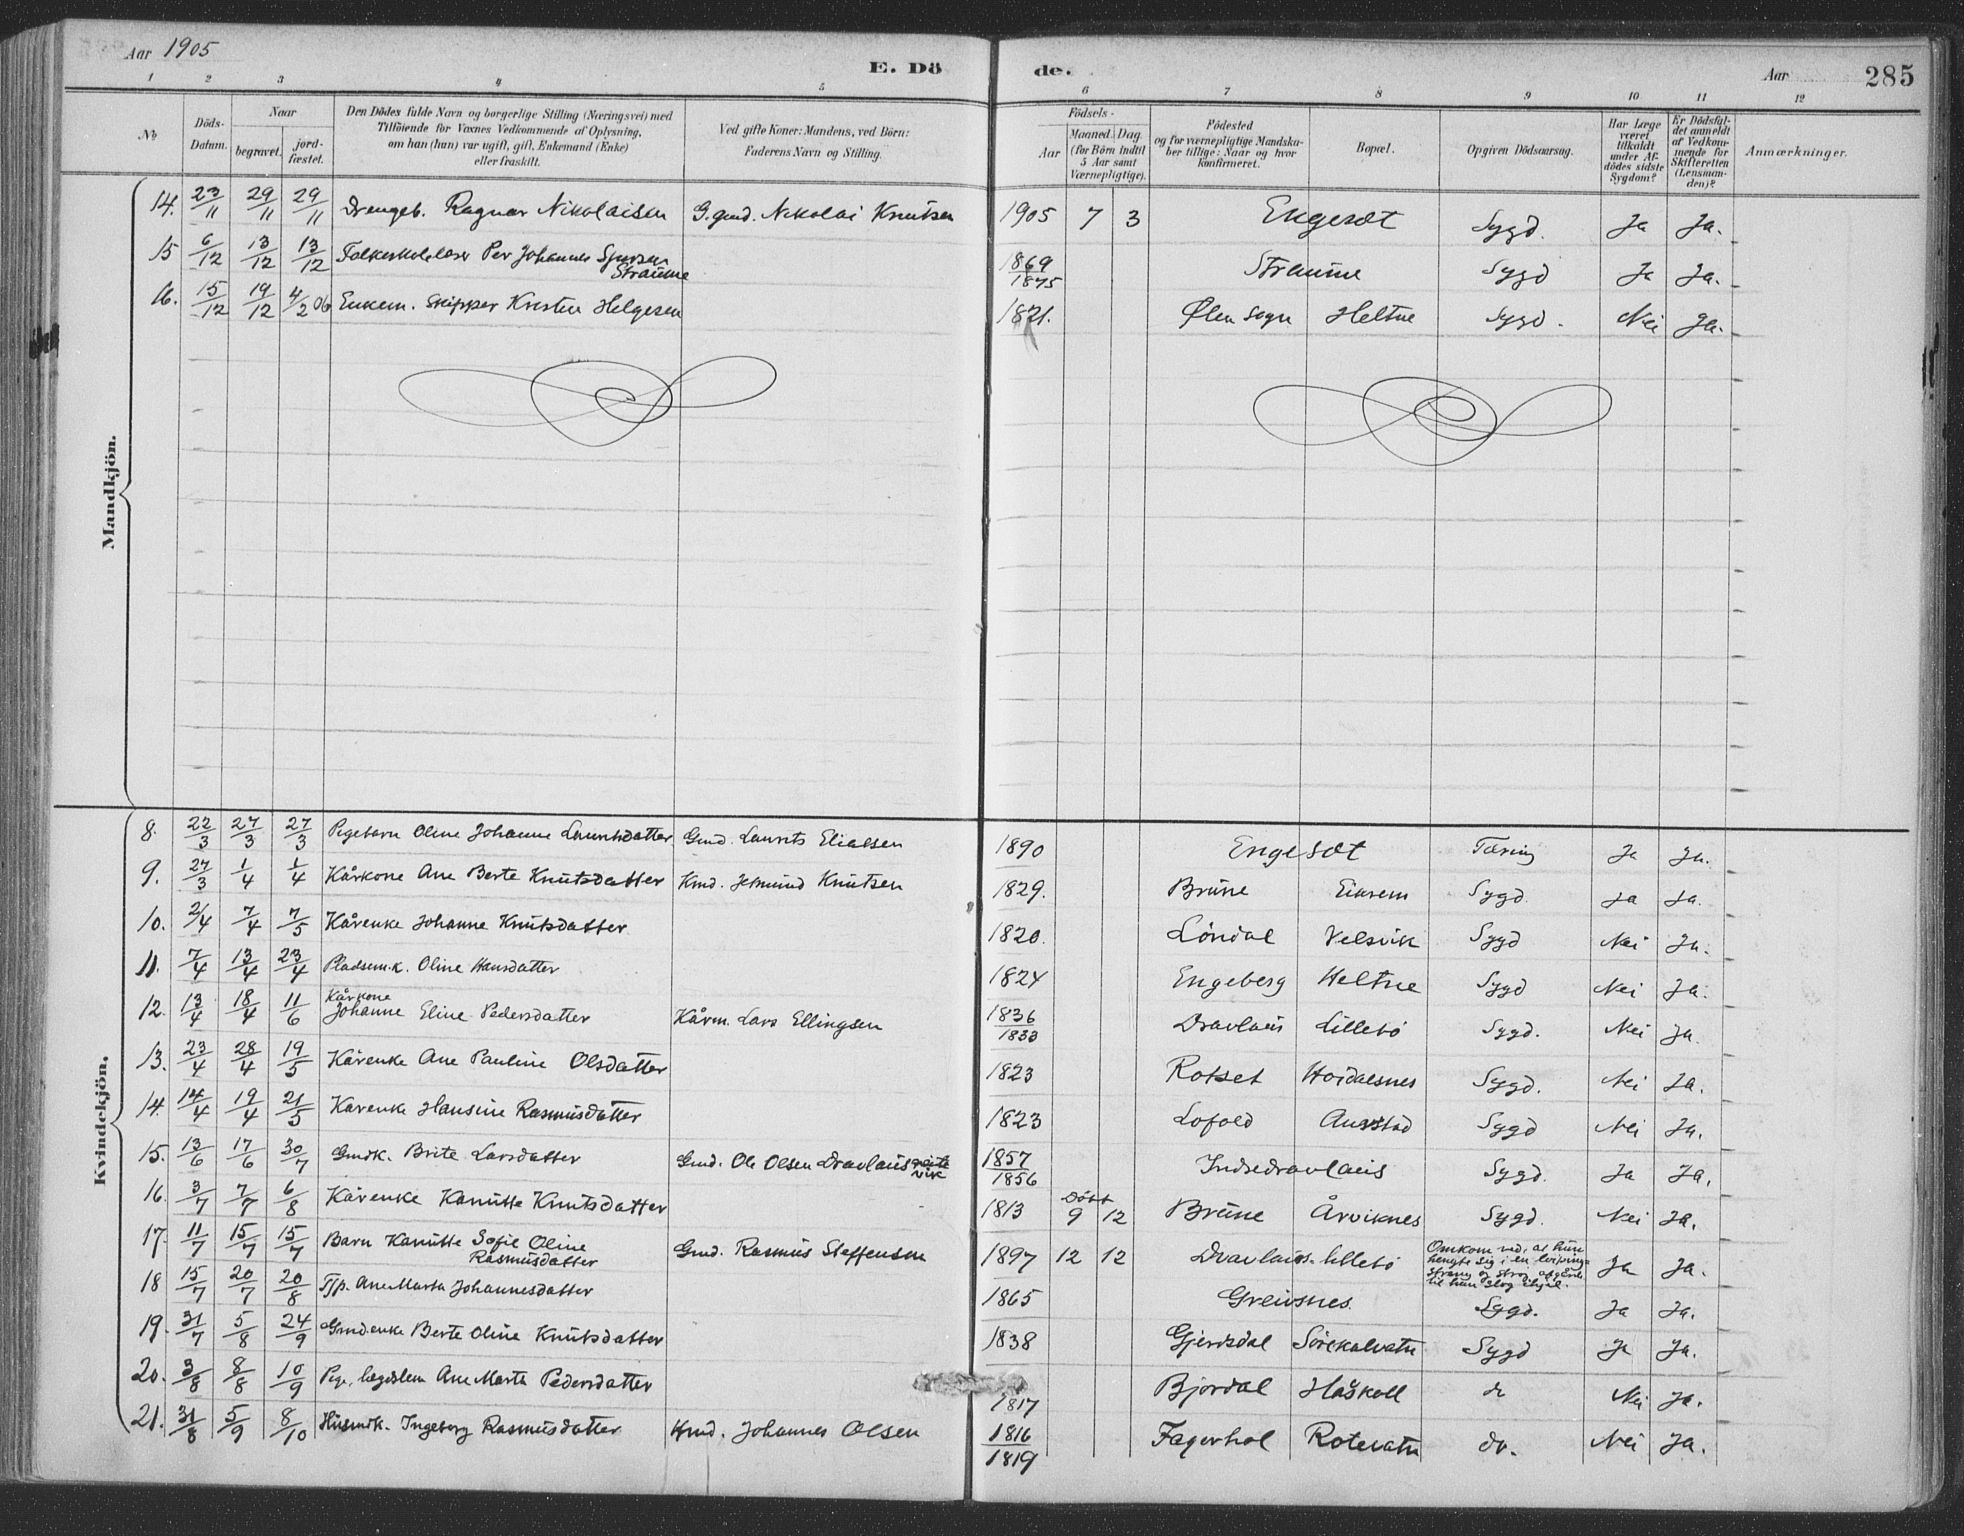 Aar 1905
E. Dö de.
Aar 285
1 2 3 4 5 6 7 8 9 10 11 12
No
Döds-Datum.
Naar
begravet.
jord-fæstet.
Den Dödes fulde Navn og borgerlige Stilling (Næringsvei) med
Tilföiende for Voxnes Vedkommende af Oplysning,
om han (hun) var ugift, gift, Enkemand (Enke)
eller fraskilt.
Ved gifte Koner: Mandens, ved Börn:
Faderens Navn og Stilling.
Födsels-
Aar
Maaned. Dag.
(for Börn indtil
5 Aar samt
Værnepligtige).
Födested
og for værnepligtige Mandska-
ber tillige: Naar og hvor
konfirmeret.
Bopæl.
Opgiven Dödsaarsag.
Har Læge
været
tilkaldt
under Af-
dödes sidste
Sygdom?
Er Dödsfal-
det anmeldt
af Vedkom-
mende for
Skifteretten
(Lensman-
den)?
Anmærkninger.
Mandkjön.
14. 23/11 29/11 29/11 Drengeb. Ragnar Nikolaisen G.gmd. Nikolai Knutsen 1905 7 3 Engesæt Sygd. Ja Ja.
15 6/12 13/12 13/12 Folkeskolelærer Per Johannes Sjursen Straume 1869/1875 Straume Sygd Ja Ja.
16. 15/12 19/12 4/2 06 Enkem. Skipper Kristen Helgesen 1821. Ølen Sogn Heltne Sygd. Nei Ja.
Kvindekjön.
8. 22/3 27/3 27/3 Pigebarn Oline Johanne Lauritsdatter Gmd. Laurits Eliassen 1890 Engesæt Tæring Ja Ja.
9. 27/3 1/4 1/4 Kårkone Ane Berte Knutsdatter Kmd. Jetmund Knutsen 1829. Brune Eiksem Sygd. Ja Ja.
10. 2/4 7/4 7/5 Kårenke Johanne Knutsdatter 1820. Löndal Velsvik Sygd Nei Ja.
11. 7/4 13/4 23/4 Pladsem.k. Oline Hansdatter 1824 Engeberg Heltne Sygd Nei Ja.
12. 13/4 18/4 11/6 Kårkone Johanne Eline Pedersdatter Kårm. Lars Ellingsen 1836/1833 Dravlaus Lillebö Sygd. Nei Ja.
13. 23/4 28/4 19/5 Kårenke Ane Pauline Olsdatter 1823 Rotset Hoidalsnes Sygd. Nei Ja.
14. 14/4 19/4 21/5 Kårenke Hansine Rasmusdatter 1823 Lofold Aurstad Sygd Nei Ja.
15. 13/6 17/6 30/7 Gmdk. Brite Larsdatter Gmd. Ole Olsen Dravlaus vik 1857/1856 Indredravlaus Sygd. Ja Ja.
16. 3/7 7/7 6/8 Kårenke Kanutte Knutsdatter 1813 Döbt 9 12 Brune Årviknes Sygd. Nei Ja.
17. 11/7 15/7 15/7 Barn Kanutte Sofie Oline Rasmusdatter Gmd. Rasmus Steffensen 1897 12 12 Dravlaus-lillebö Omkom ved, at hun
hengte sig i en
streng og
til hun slog ihjel. Ja Ja.
18 15/7 20/7 20/8 Tjp. Ane Marta Johannesdatter 1865 Greivsnes. Sygd. Ja Ja.
19. 31/7 5/8 24/9 Gmdenke Berte Oline Knutsdatter 1838 Gjerdsdal Sörekalvatn Sygd Ja Ja.
20. 3/8 8/8 10/9 Pige, lægdslem Ane Marte Pedersdatter 1817 Bjordal Håskoll do Nei Ja.
21. 31/8 5/9 8/10 Husmdk. Ingeborg Rasmusdatter Hmd. Johannes Olsen 1816/1819 Fagerhol Rotevatn do. Nei Ja.